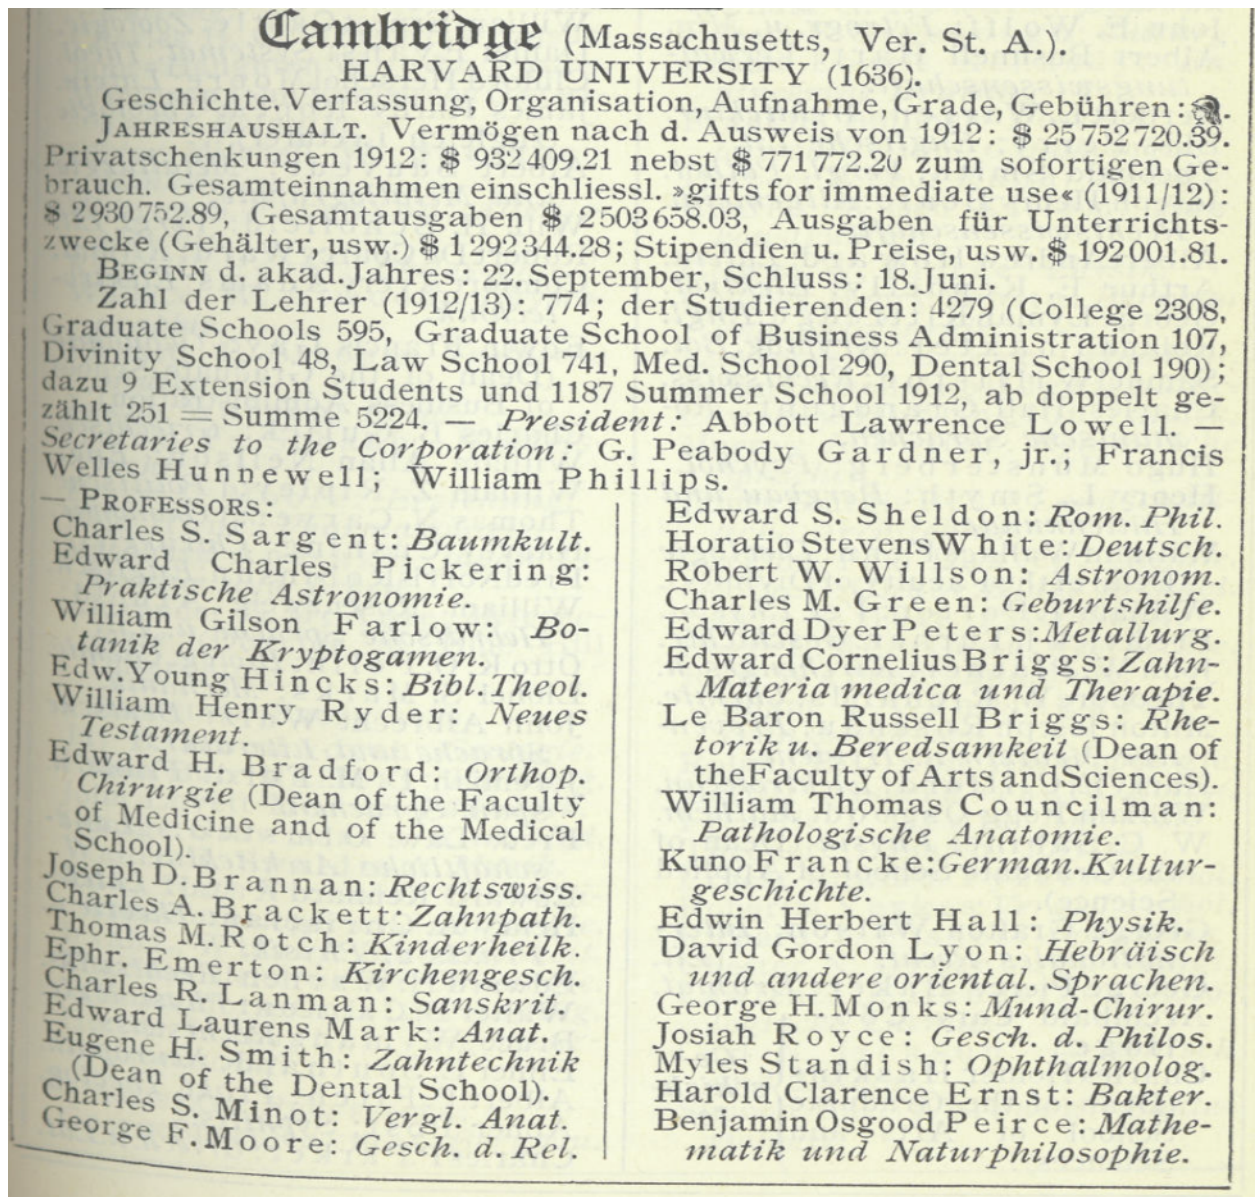 Cambridge (Massachusetts, Ver. St. A.).
HARVARD UNIVERSITY (1636).
Geschichte, Verfassung, Organisation, Aufnahme, Grade, Gebühren:
JAHRESHAUSHALT. Vermögen nach d. Ausweis von 1912: $ 25 752 720.39.
Privatschenkungen 1912: $ 932 409.21 nebst $ 771 772.20 zum sofortigen Ge-
brauch. Gesamteinnahmen einschliessl. »gifts for immediate use« (1911/12):
$ 2 930 752.89, Gesamtausgaben $ 2 503 658.03, Ausgaben für Unterrichts-
zwecke (Gehälter, usw.) $ 1 292 344.28; Stipendien u. Preise, usw. $ 192 001.81.
BEGINN d. akad. Jahres: 22. September, Schluss: 18. Juni.
Zahl der Lehrer (1912/13): 774; der Studierenden: 4279 (College 2308,
Graduate Schools 595, Graduate School of Business Administration 107,
Divinity School 48, Law School 741, Med. School 290, Dental School 190);
dazu 9 Extension Students und 1187 Summer School 1912, ab doppelt ge-
zählt 251 = Summe 5224. — President: Abbott Lawrence Lowell. —
Secretaries to the Corporation: G. Peabody Gardner, jr.; Francis
Welles Hunnewell; William Phillips.
— PROFESSORS:
Charles S. Sargent: Baumkult.
Edward Charles Pickering:
Praktische Astronomie.
William Gilson Farlow: Bo-
tanik der Kryptogamen.
Edw. Young Hincks: Bibl. Theol.
William Henry Ryder: Neues
Testament.
Edward H. Bradford: Orthop.
Chirurgie (Dean of the Faculty
of Medicine and of the Medical
School).
Joseph D. Brannan: Rechtswiss.
Charles A. Brackett: Zahnpath.
Thomas M. Rotch: Kinderheilk.
Ephr. Emerton: Kirchengesch.
Charles R. Lanman: Sanskrit.
Edward Laurens Mark: Anat.
Eugene H. Smith: Zahntechnik
(Dean of the Dental School).
Charles S. Minot: Vergl. Anat.
George F. Moore: Gesch. d. Rel.
Edward S. Sheldon: Rom. Phil.
Horatio Stevens White: Deutsch.
Robert W. Willson: Astronom.
Charles M. Green: Geburtshilfe.
Edward Dyer Peters: Metallurg.
Edward Cornelius Briggs: Zahn-
Materia medica und Therapie.
Le Baron Russell Briggs: Rhe-
torik u. Beredsamkeit (Dean of
the Faculty of Arts and Sciences).
William Thomas Councilman:
Pathologische Anatomie.
Kuno Francke: German. Kultur-
geschichte.
Edwin Herbert Hall: Physik.
David Gordon Lyon: Hebräisch
und andere oriental. Sprachen.
George H. Monks: Mund-Chirur.
Josiah Royce: Gesch. d. Philos.
Myles Standish: Ophthalmolog.
Harold Clarence Ernst: Bakter.
Benjamin Osgood Peirce: Mathe-
matik und Naturphilosophie.